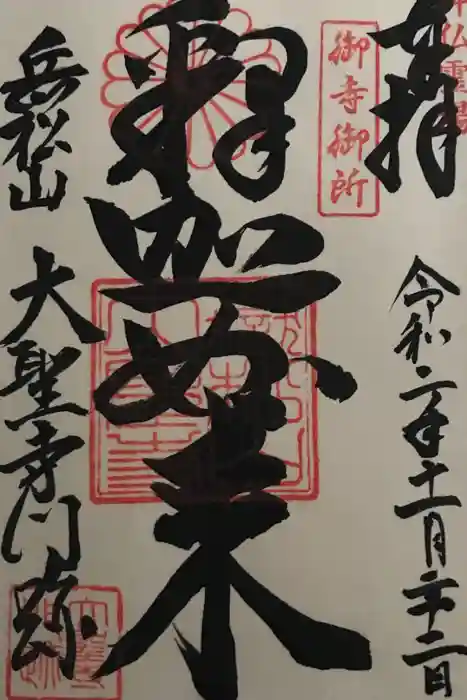 奉拝
令和二年十一月二十二日
御寺御所
釈迦如来
岳松山
大聖寺門跡